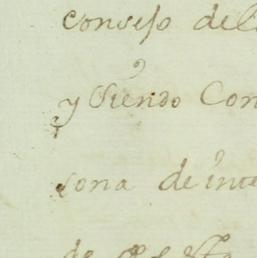 consejo del
y siendo Con
sona de inte
de